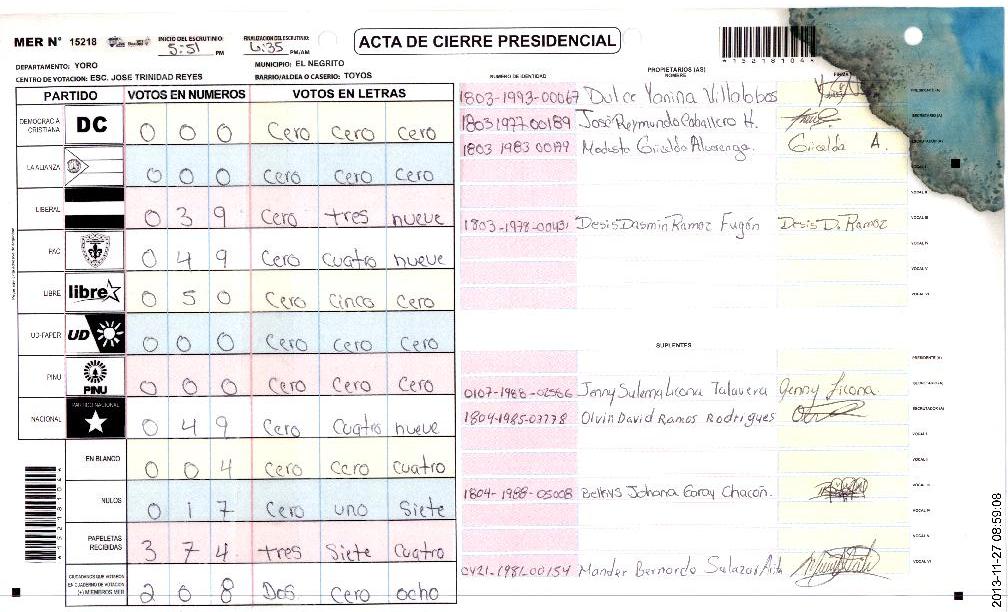 MER N° 15218
INICIO DEL ESCRUTINIO 5:51 PM
FINALIZACION DEL ESCRUTINIO 6:35 PM/AM
ACTA DE CIERRE PRESIDENCIAL
*15218104*
DEPARTAMENTO: YORO MUNICIPIO: EL NEGRITO
CENTRO DE VOTACION: ESC. JOSE TRINIDAD REYES BARRIO/ALDEA O CASERIO: TOYOS
PARTIDO VOTOS EN NUMEROS VOTOS EN LETRAS
DEMOCRACIA CRISTIANA DC 0 0 0 Cero Cero Cero
LA ALIANZA 0 0 0 Cero Cero Cero
LIBERAL 0 3 9 Cero tres nueve
PAC 0 4 9 Cero Cuatro nueve
LIBRE libre 0 5 0 Cero Cinco Cero
UD-FAPER UD 0 0 0 Cero Cero Cero
PINU PINU 0 0 0 Cero Cero Cero
NACIONAL PARTIDO NACIONAL 0 4 9 Cero Cuatro nueve
EN BLANCO 0 0 4 Cero Cero Cuatro
NULOS 0 1 7 Cero uno Siete
PAPELETAS RECIBIDAS 3 7 4 tres Siete Cuatro
CIUDADANOS QUE VOTARON EN CUADERNO DE VOTACION (+) MIEMBROS MER 2 0 8 Dos Cero ocho
NUMERO DE IDENTIDAD PROPIETARIOS (AS) NOMBRE FIRMA
1803-1993-00067 Dulce Yanina Villalobos PRESIDENTE (A)
1803 1977 00189 José Reymundo Caballero H. SECRETARIO (A)
1803 1983 Modesto Griselda Alvarenga. Griselda A. ESCRUTADOR (A)
VOCAL I
VOCAL II
1803-1978-00431 Desis Dasmin Ramoz Fugón Desis D. Ramoz VOCAL III
VOCAL IV
VOCAL V
VOCAL VI
SUPLENTES
PRESIDENTE (A)
0107-1988-02586 Jenny Sulema Licona Talavera Jenny Licona. SECRETARIO (A)
1804-1985-03778 Olvin David Ramos Rodrigues ESCRUTADOR (A)
VOCAL I
VOCAL II
1804-1988-05008 Belkys Johana Garay Chacón. VOCAL III
VOCAL IV
VOCAL V
0421-1981-00154 Mander Bernardo Salazar VOCAL VI
2013-11-27 08:59:08